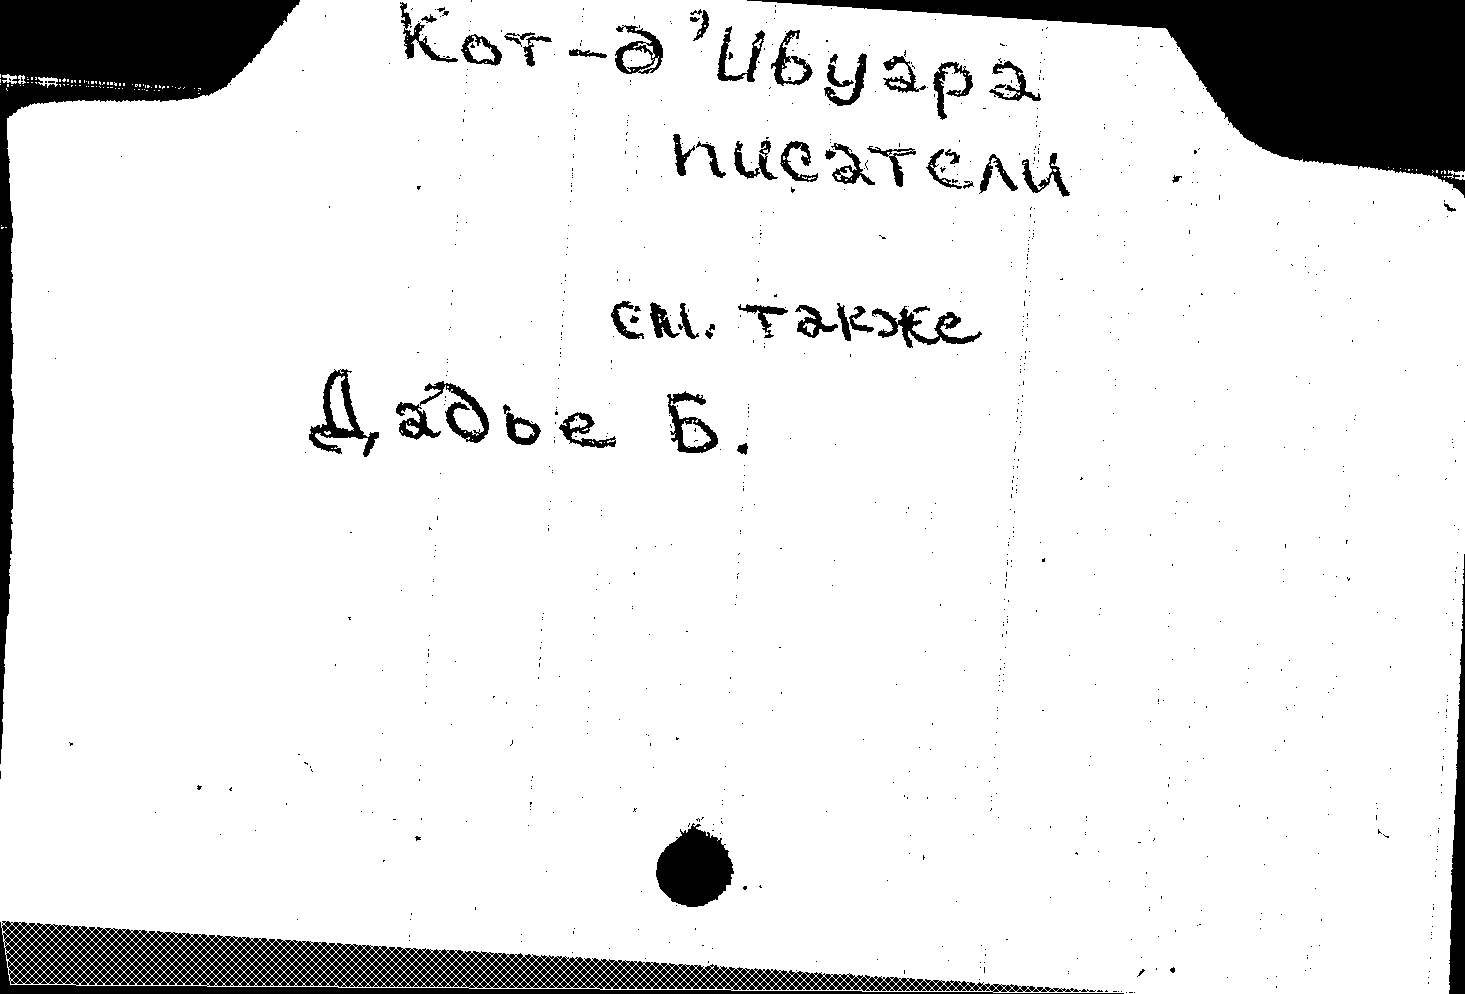 Кот-д'Ивуара
писатели
см. также
Дадье Б.